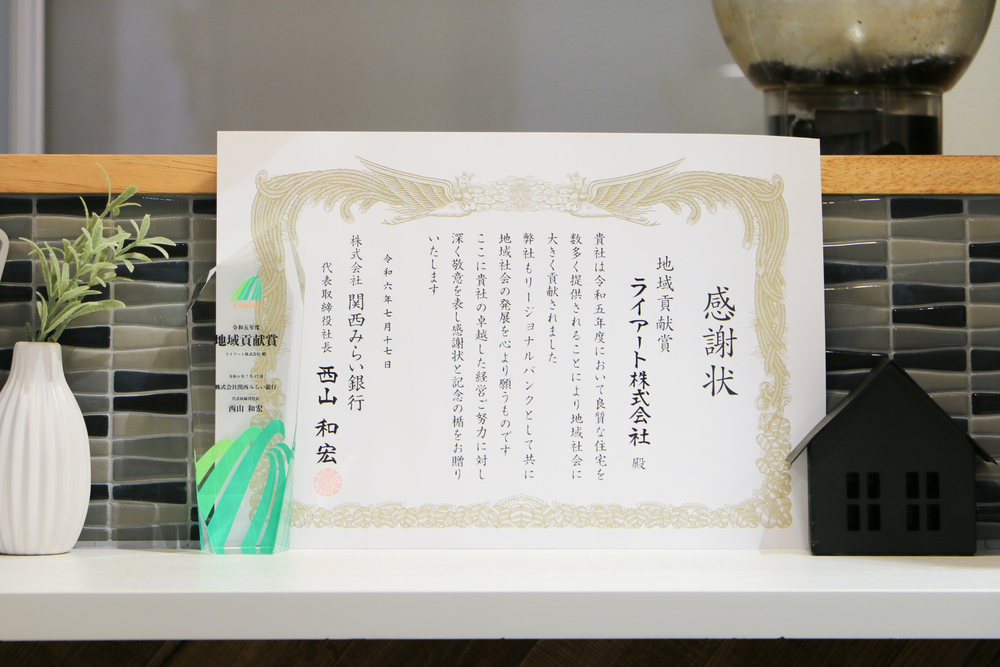 感謝状
地域貢献賞
ライアート株式会社 殿
貴社は令和五年度において良質な住宅を
数多く提供されることにより地域社会に
大きく貢献されました
弊社もリージョナルバンクとして共に
地域社会の発展を心より願うものです
ここに貴社の卓越した経営ご努力に対し
深く敬意を表し感謝状と記念の楯をお贈り
いたします
令和六年七月十七日
株式会社 関西みらい銀行
代表取締役社長 西山 和宏
令和五年度
地域貢献賞
ライアート株式会社 殿
令和6年7月17日
株式会社関西みらい銀行
代表取締役社長
西山 和宏